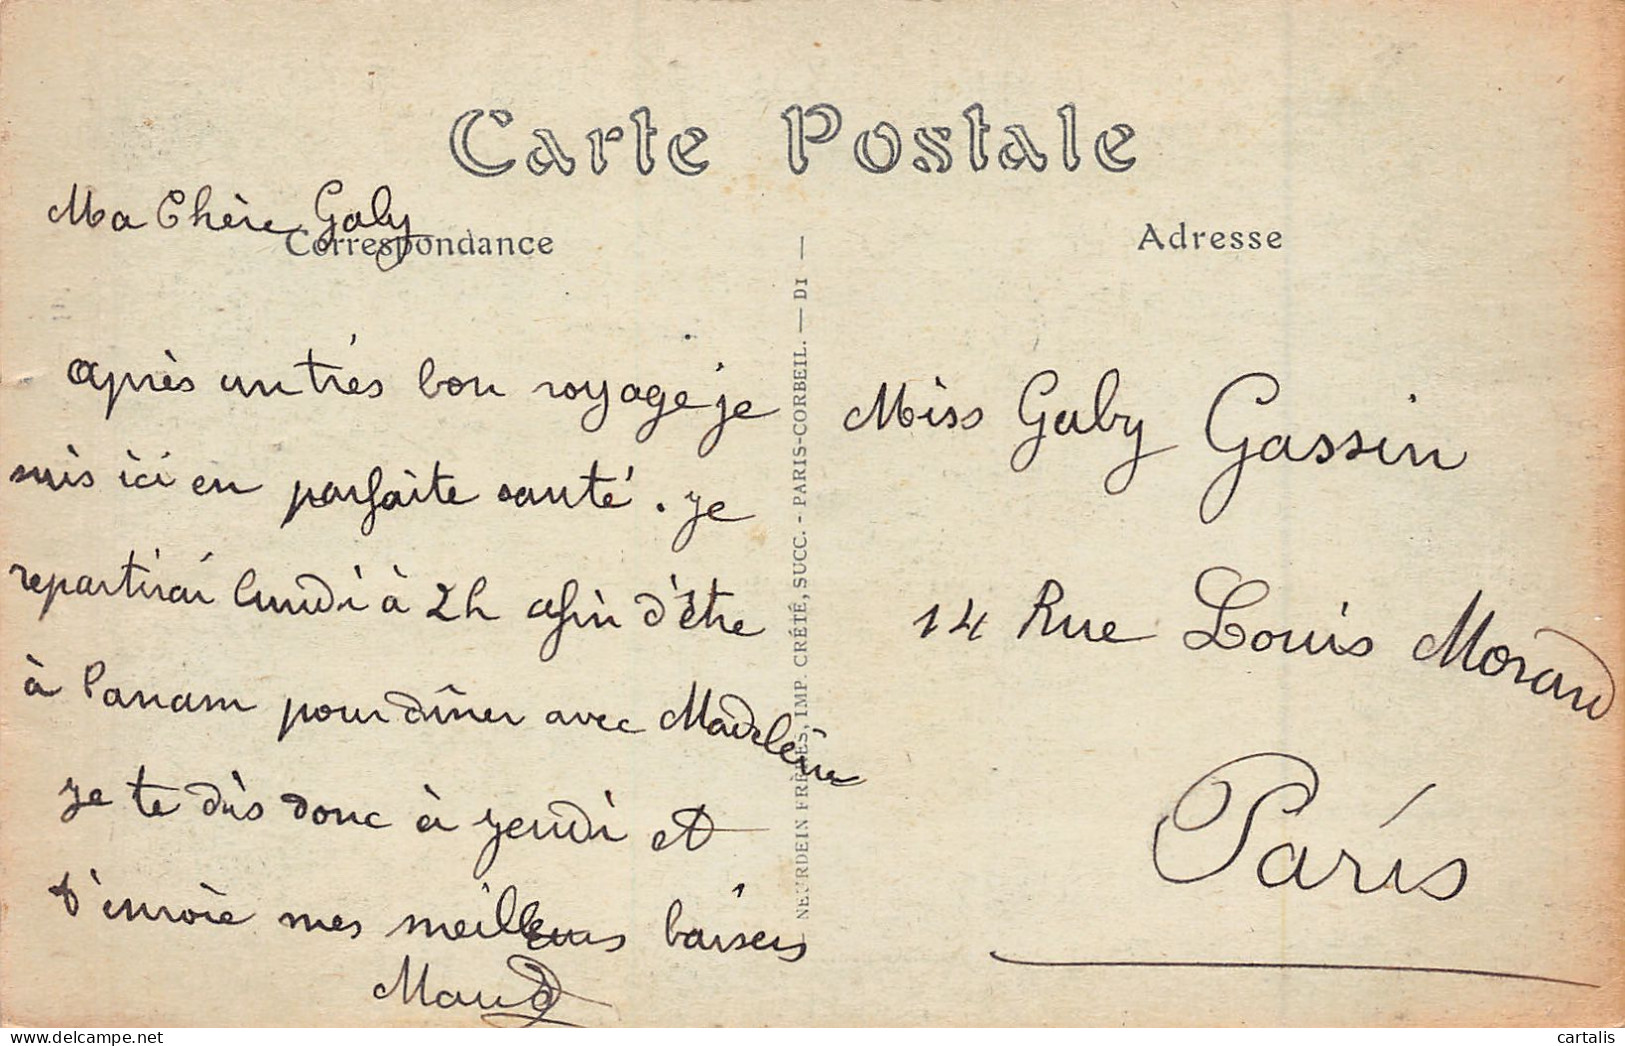 Carte Postale
Correspondance
Adresse
Ma Chère Gaby
après un très bon voyage je
suis ici en parfaite santé. je
repartirai lundi à 2h afin d'être
à Panam pour dîner avec Madeleine
je te dis donc à jeudi et
t'envoie mes meilleurs baisers
Maud
NEURDEIN FRÈRES, IMP. CRÉTÉ, SUCC. - PARIS-CORBEIL. — DI —
Miss Gaby Gassin
14 Rue Louis Morand
Paris
cartalis